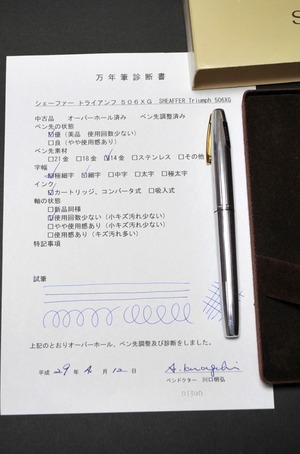 S
万年筆診断書
シェーファー トライアンフ 506XG SHEAFFER Triumph 506XG
中古品 オーバーホール済み ペン先調整済み
ペン先の状態
☑優(美品 使用回数少ない)
□良(やや使用感あり)
ペン先素材
□21金 □18金 ☑14金 □ステンレス □その他
字幅
☑極細字 ☑細字 □中字 □太字 □極太字
インク
☑カートリッジ、コンバータ式 □吸入式
軸の状態
□新品同様
☑使用回数少ない(小キズ汚れ少ない)
□やや使用感あり(小キズ汚れ少ない)
□使用感あり(キズ汚れ多い)
特記事項
試筆
上記のとおりオーバーホール、ペン先調整及び診断をしました。
平成 29 年 4 月 12 日
ペンドクター 川口明弘
01300